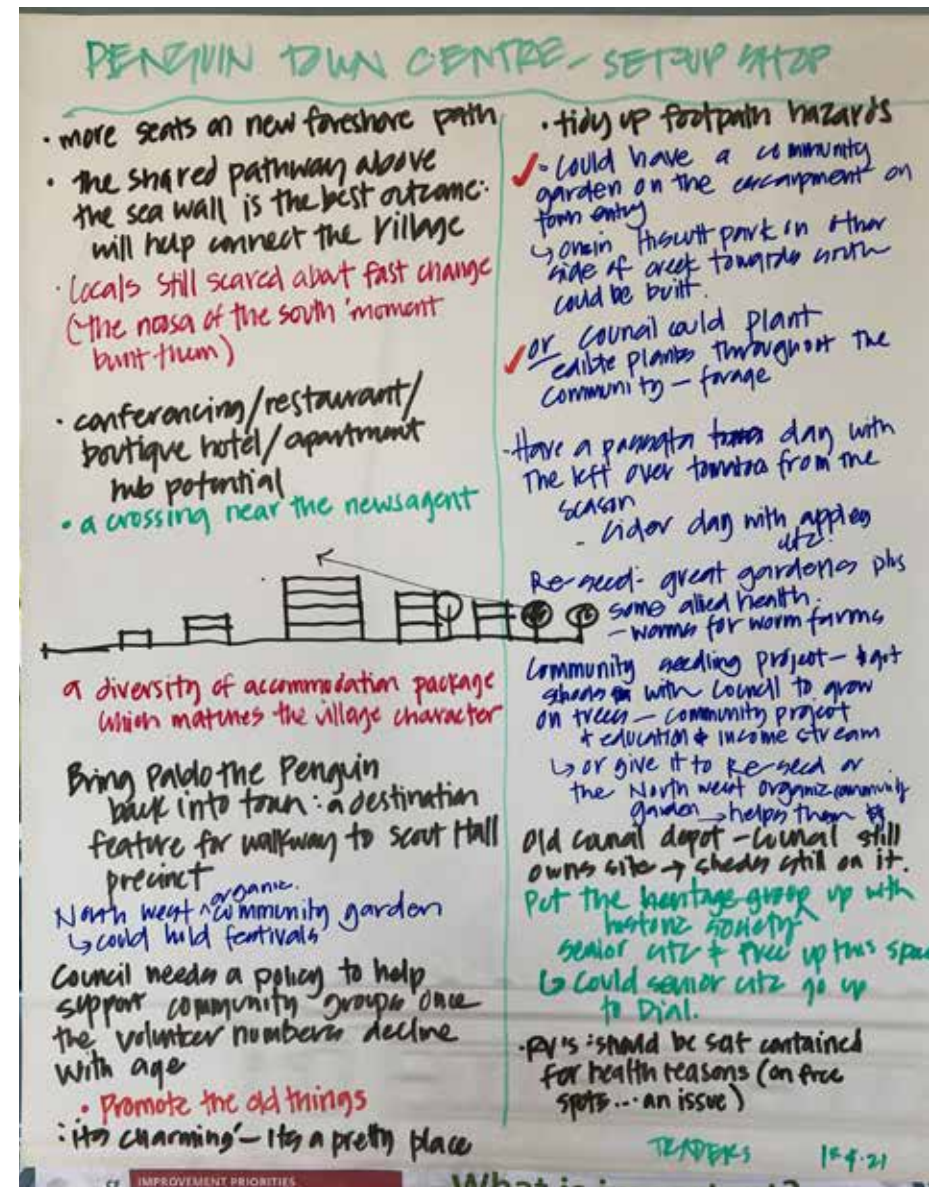 PENGUIN TOWN CENTRE - SET-UP SHOP
· more seats on new foreshore path
· the shared pathway above
the sea wall is the best outcome:
will help connect the Village
· Locals still scared about fast change
('the noosa of the south' moment
burnt them)
· conferencing/restaurant/
boutique hotel/apartment
hub potential
· a crossing near the newsagent
a diversity of accommodation package
which matches the village character
Bring Pablo the Penguin
back into town: a destination
feature for walkway to scout Hall
precinct
North west ^organic community garden
↳ could hold festivals
Council needs a policy to help
support community groups once
the volunteer numbers decline
with age
· Promote the old things
: 'its charming' - Its a pretty place
· tidy up footpath hazards
✓ - Could have a community
garden on the escarpment on
town entry
↳ Hiscutt park on other
side of creek towards south
could be built.
✓ or Council could plant
edible plants throughout the
community - forage
- Have a passata day with
The left over tomatoes from the
season
- Cider day with apples
etz.
Re-seed: great gardens plus
some allied health.
- worms for worm farms
Community seedling project - got
sheds with Council to grow
on trees - community project
+ education + income stream
↳ or give it to Re-seed or
the North west organic community
garden → helps them
Old council depot - Council still
owns site → sheds still on it.
Put the heritage group up with
historic society
senior citz + free up this space
↳ Could senior citz go up
to Dial.
· RV's: should be self contained
for health reasons (on free
spots... an issue)
TRADERS 15.4.21
IMPROVEMENT PRIORITIES
What is important?